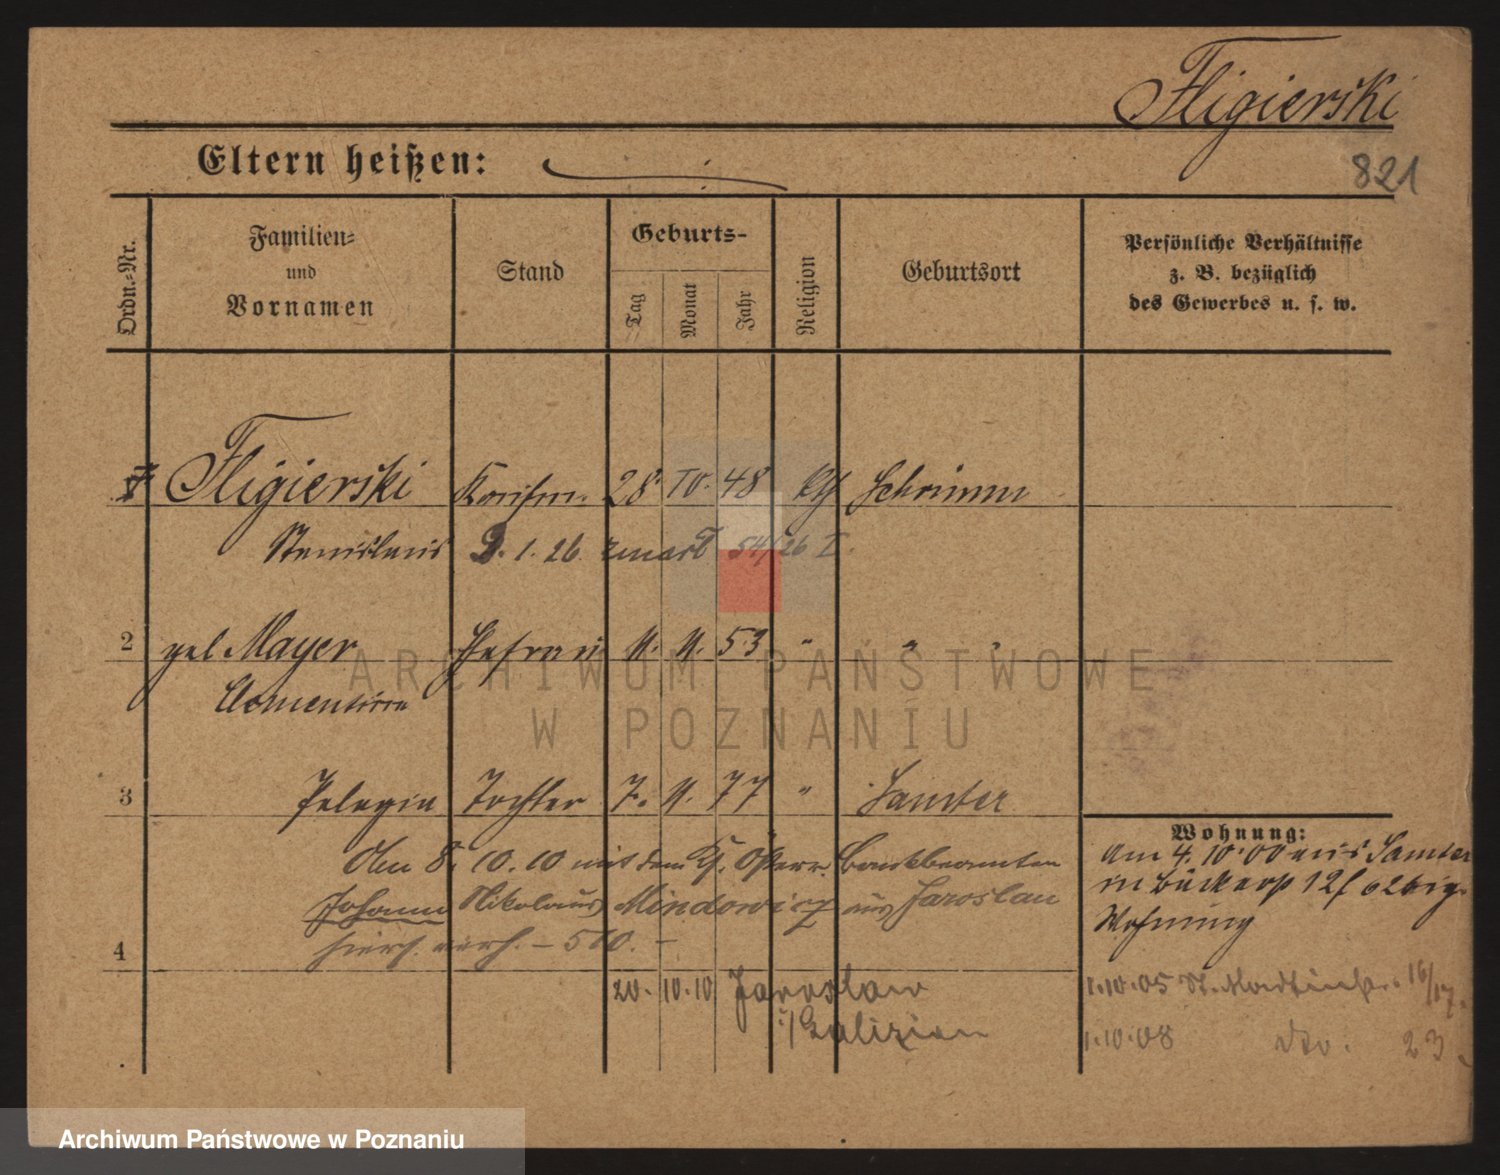 Fligierski
821
Eltern heißen:
Ordn.-Nr.
Familien-
und
Vornamen
Stand
Geburts-
Tag
Monat
Jahr
Religion
Geburtsort
Persönliche Verhältnisse
z. B. bezüglich
des Gewerbes u. s. w.
1 Fligierski Kaufm. 28. IV. 48 Schrimm
Stanislaus 9. 1. 26 zmarł 54/26 I.
2 geb. Mayer Ehefrau 11. 11. 53 " " "
Clementine
3 Pelagia Tochter 7. 11. 77 " Samter
Am 8. 10. 10 mit dem K. Österr. Bankbeamten
Johann Nikolaus Mindowicz aus Jaroslau
4 hiers. verh. – 510. –
20. 10. 10 Jaroslaw
i/Galizien
Wohnung:
Am 4. 10. 00 aus Samter
in 12
Wohnung
1. 10. 05 St. Martinstr. 16/17.
1. 10. 08 dto. 23
ARCHIWUM PAŃSTWOWE
W POZNANIU
Archiwum Państwowe w Poznaniu